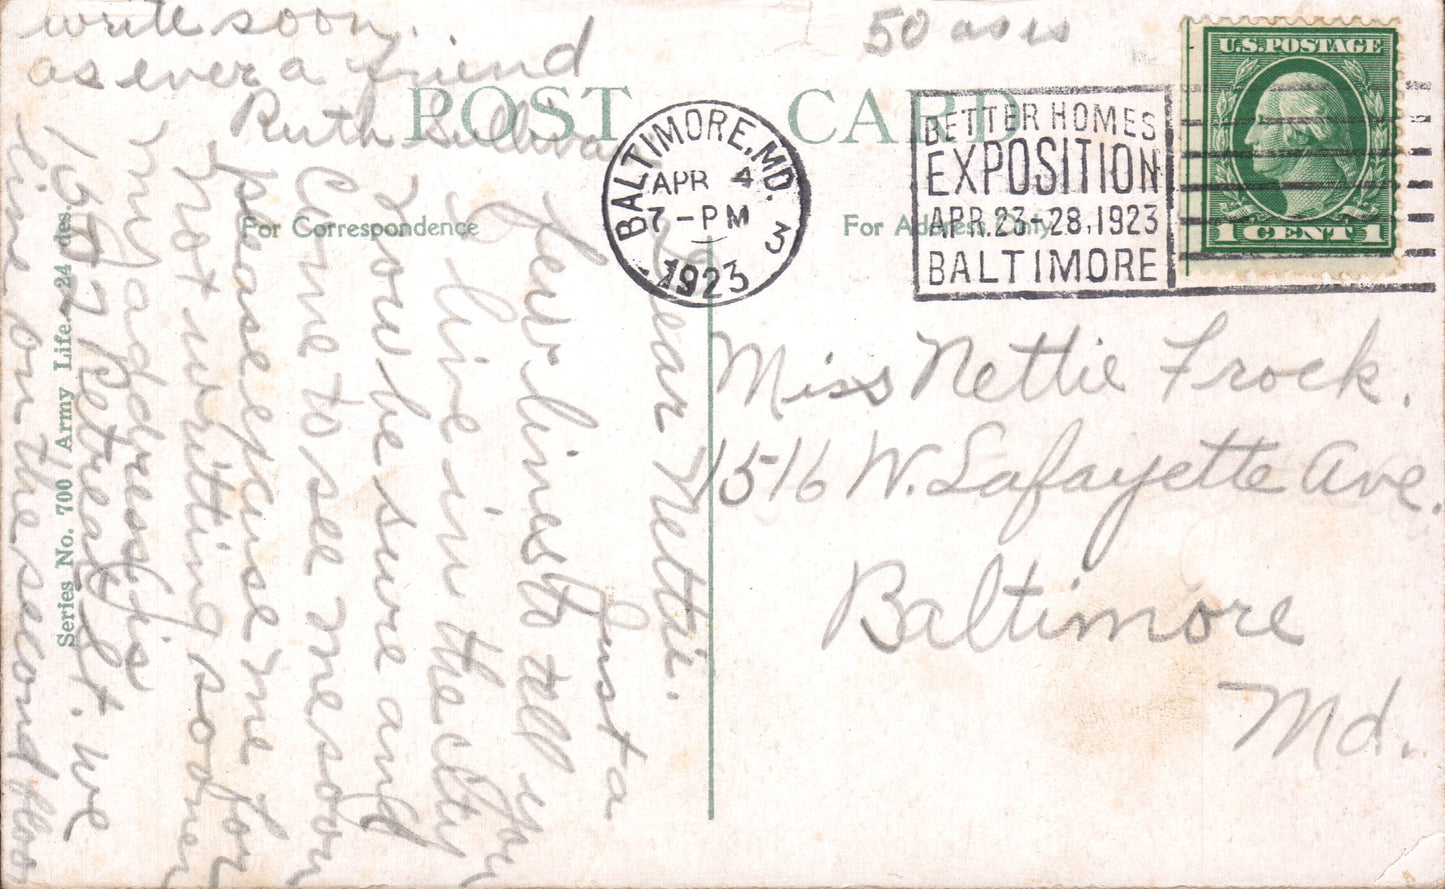 POST CARD
For Correspondence
For Address Only
Series No. 700 Army Life—24 des.
50 as is
BALTIMORE, MD.
APR 4
7-PM
1923
3
BETTER HOMES
EXPOSITION
APR. 23-28, 1923
BALTIMORE
U.S. POSTAGE
1 CENT 1
Miss Nettie Frock.
1516 W. Lafayette Ave.
Baltimore
Md.
Dear Nettie.
Just a
few lines to tell you
I live in the city
now be sure and
Come to see me soon
please excuse me for
not writting sooner
my address is
1577 Retreat St. we
live on the second floor
write soon.
as ever a friend
Ruth Sulliva